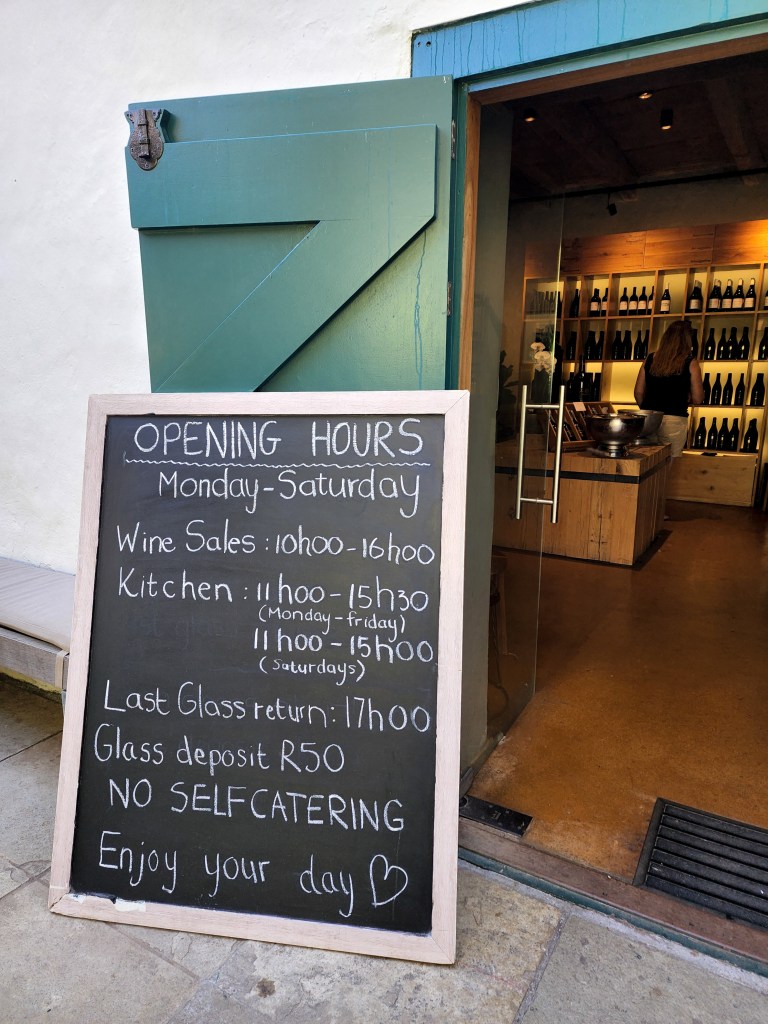 OPENING HOURS
Monday-Saturday
Wine Sales : 10h00 - 16h00
Kitchen : 11h00 - 15h30
(Monday - friday)
11h00 - 15h00
(Saturdays)
Last Glass return: 17h00
Glass deposit R50
NO SELFCATERING
Enjoy your day ♡